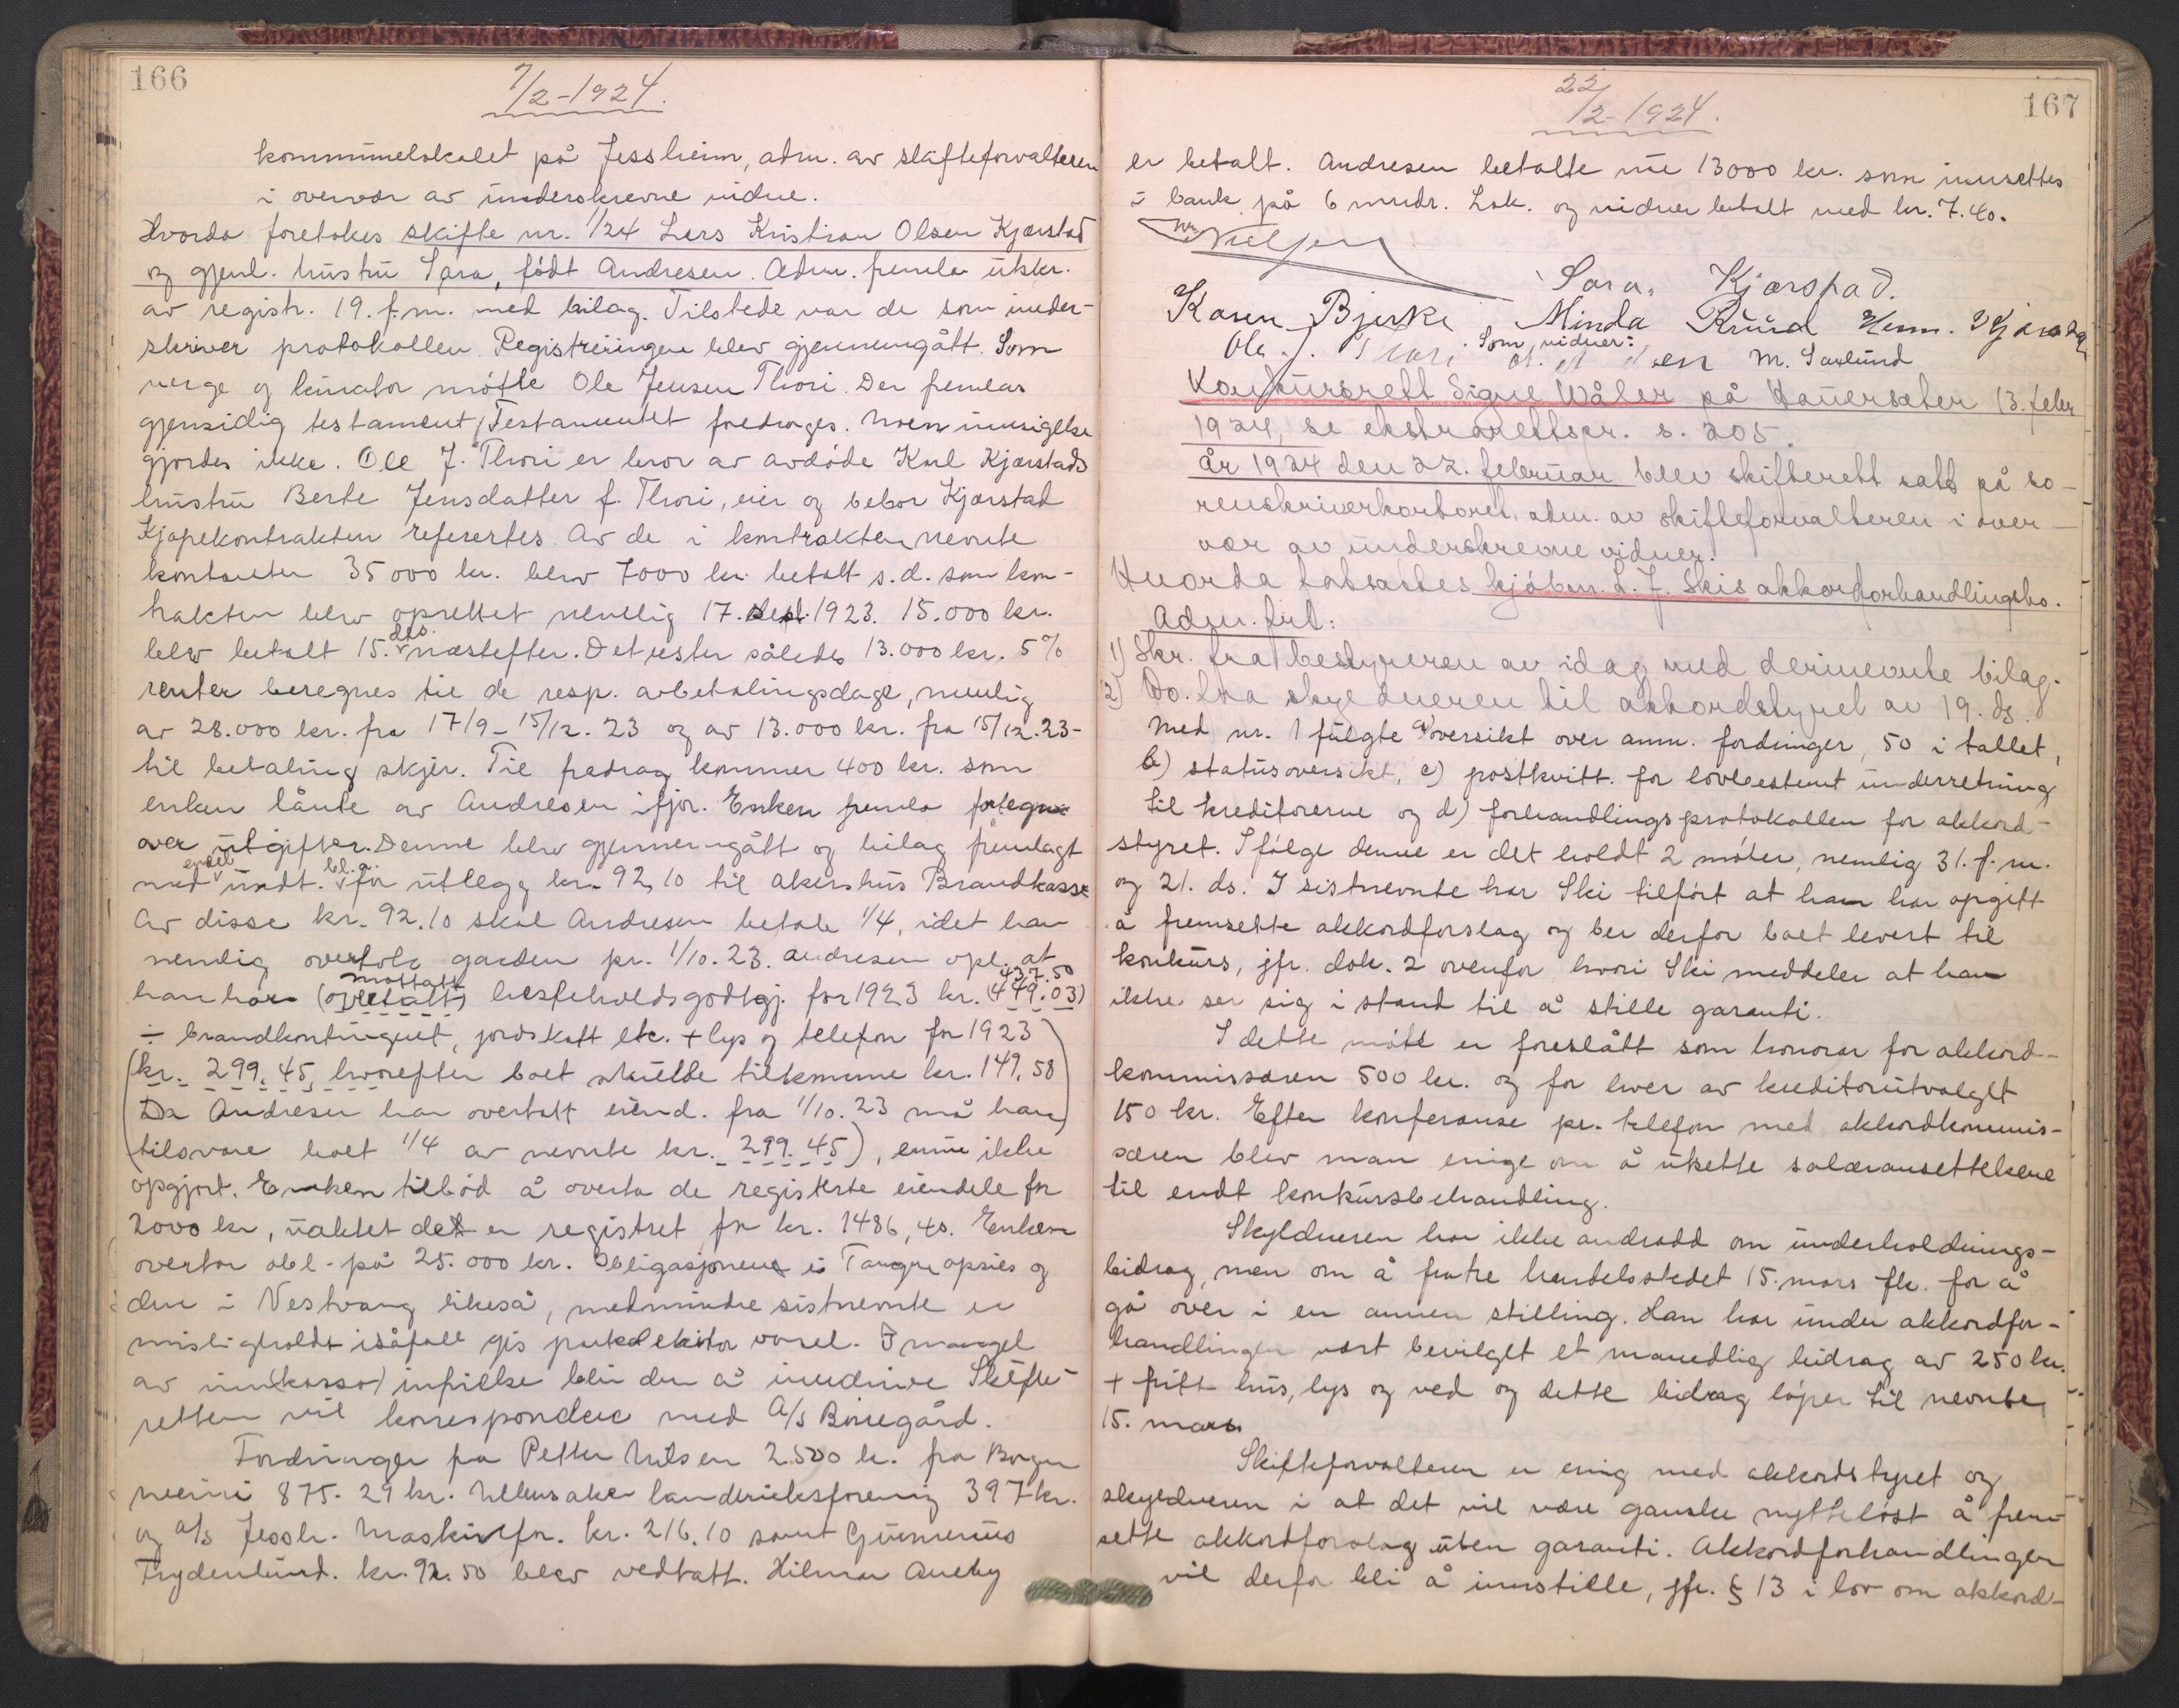 166
7/2-1924.
kommunelokalet på Jessheim, adm. av skifteforvalteren
i overvær av underskrevne vidne.
Hvorda foretokes skifte nr. 1/24 Lars Kristian Olsen Kjærstad
og gjenl. hustru Sara, født Andresen. Adm. fremla utskr.
av registr. 19. f.m. med bilag. Tilstede var de som under-
skriver protokollen. Registreringen blev gjennemgått. Som
verge og kurator møtte Ole Jensen Thori. Der fremlas
gjensidig testament, Testamentet foredroges. Noen innsigelse
gjordes ikke. Ole J. Thori er bror av avdøde Karl Kjærstads
hustru Berte Jensdatter f. Thori, eier og bebor Kjærstad
Kjøpekontrakten referertes. Av de i kontrakten nevnte
kontanter 35000 kr. blev 7000 kr. betalt s.d. som kon-
trakten blev oprettet nemlig 17. sept. 1923. 15.000 kr.
blev betalt 15. des. næstefter. Det rester således 13.000 kr. 5%
renter beregnes til de resp. avbetalingsdage, nemlig
av 28.000 kr. fra 17/9 - 15/12. 23 og av 13.000 kr. fra 15/12. 23-
til betaling skjer. Til fradrag kommer 400 kr. som
enken lånte av Andresen ifjor. Enken fremla fortegn
over utgifter. Denne blev gjennemgått og bilag fremlagt
med endel undt. bl.a. for utlegg kr. 92,10 til Akershus Brandkasse
Av disse kr. 92.10 skal Andresen betale 1/4, idet han
nemlig overtok garden pr. 1/10. 23. Andresen opl. at
han har (overtatt) mottatt hesteholdsgodtgj. for 1923 kr. (449.03) 437.50
÷ brandkontingent, jordskatt etc. + lys og telefon for 1923
(kr. 299.45, hvorefter boet skulde tilkomme kr. 149,58
Da Andresen har overtatt eiend. fra 1/10. 23 må han
tilsvare boet 1/4 av nevnte kr. 299.45), ennu ikke
opgjort. Enken tilbød å overta de registrerte eiendele for
2000 kr, uaktet det er registret for kr. 1486,40. Enken
overtar obl. på 25.000 kr. Obligasjonene i Tangen opsies og
den i Nestvang likeså, medmindre sistnevnte er
misligholdt isåfall gis debitor varsel. I mangel
av (inkasso) infrielse blir den å inndrive Skifte-
retten vil korrespondere med A/S Børregård.
Fordringer på Petter Nilsen 2.500 kr. fra Borgen
meieri 875.29 kr. Ullensaker landbruksforening 397 kr.
og A/S Jessh. Maskinfor. kr. 216.10 samt Gunnerius
Frydenlund. kr. 92.50 blev vedtatt. Hilmar Aneby
167
22/2-1924.
er betalt. Andresen betalte nu 13000 kr. som innsettes
i bank på 6 mndr. Lok. og vidner betalt med kr. 7.40.
Nielsen
Sara Kjærstad.
Karen Bjerke Minda Ruud Herm. Kjærstad
Ole J. Thori Som vidner: M. Saxlund
Konkursrett Signe Wåler på Hauersæter 13. febr
1924, se ekstrarettspr. s. 205.
År 1924 den 22. februar blev skifterett satt på so-
renskriverkontoret, adm. av skifteforvalteren i over-
vær av underskrevne vidner.
Hvorda fatsattes kjøbm. L. J. Skis akkordforhandlingsbo.
Adm. frl:
1) Skr. fra bestyreren av idag med derinevnte bilag.
2) Do. fra skyldneren til akkordstyret av 19. ds.
Med nr. 1 fulgte a) oversikt over anm. fordringer, 50 i tallet,
b) statusoversikt, c) postkvitt. for lovbestemt underretning
til kreditorerne og d) forhandlingsprotokollen for akkord-
styret. Ifølge denne er det holdt 2 møter, nemlig 31. f.m.
og 21. ds. I sistnevnte har Ski tilført at han har opgitt
å fremsette akkordforslag og ber derfor boet levert til
konkurs, jfr. dok. 2 ovenfor hvori Ski meddeler at han
ikke ser sig i stand til å stille garanti.
I dette møte er foreslått som honorar for akkord-
kommissæren 500 kr. og for hver av kreditorutvalget
150 kr. Efter konferanse pr. telefon med akkordkommis-
særen blev man enige om å utsette salæransettelsene
til endt konkursbehandling.
Skyldneren har ikke andradd om underholdnings-
bidrag, men om å fratre handelsstedet 15. mars fk. for å
gå over i en annen stilling. Han har under akkordfor-
handlingen vært bevilget et månedlig bidrag av 250 kr.
+ fritt hus, lys og ved og dette bidrag løper til nevnte
15. mars
Skifteforvalteren er enig med akkordstyret og
skyldneren i at det vil være ganske nytteløst å frem-
sette akkordforslag uten garanti. Akkordforhandlingen
vil derfor bli å innstille, jfr. § 13 i lov om akkord-